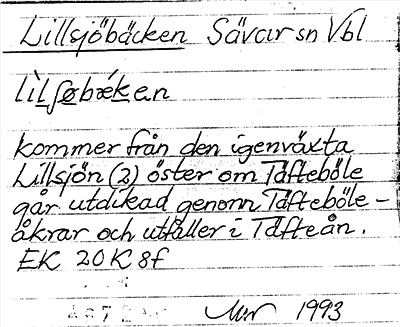 Lillsjöbäcken Sävar sn Vbl
kommer från den igenväxta
Lillsjön (2) öster om Täfteböle
går utdikad genom Täfteböle-
åkrar och utfaller i Täfteån.
EK 20K 8f
1993